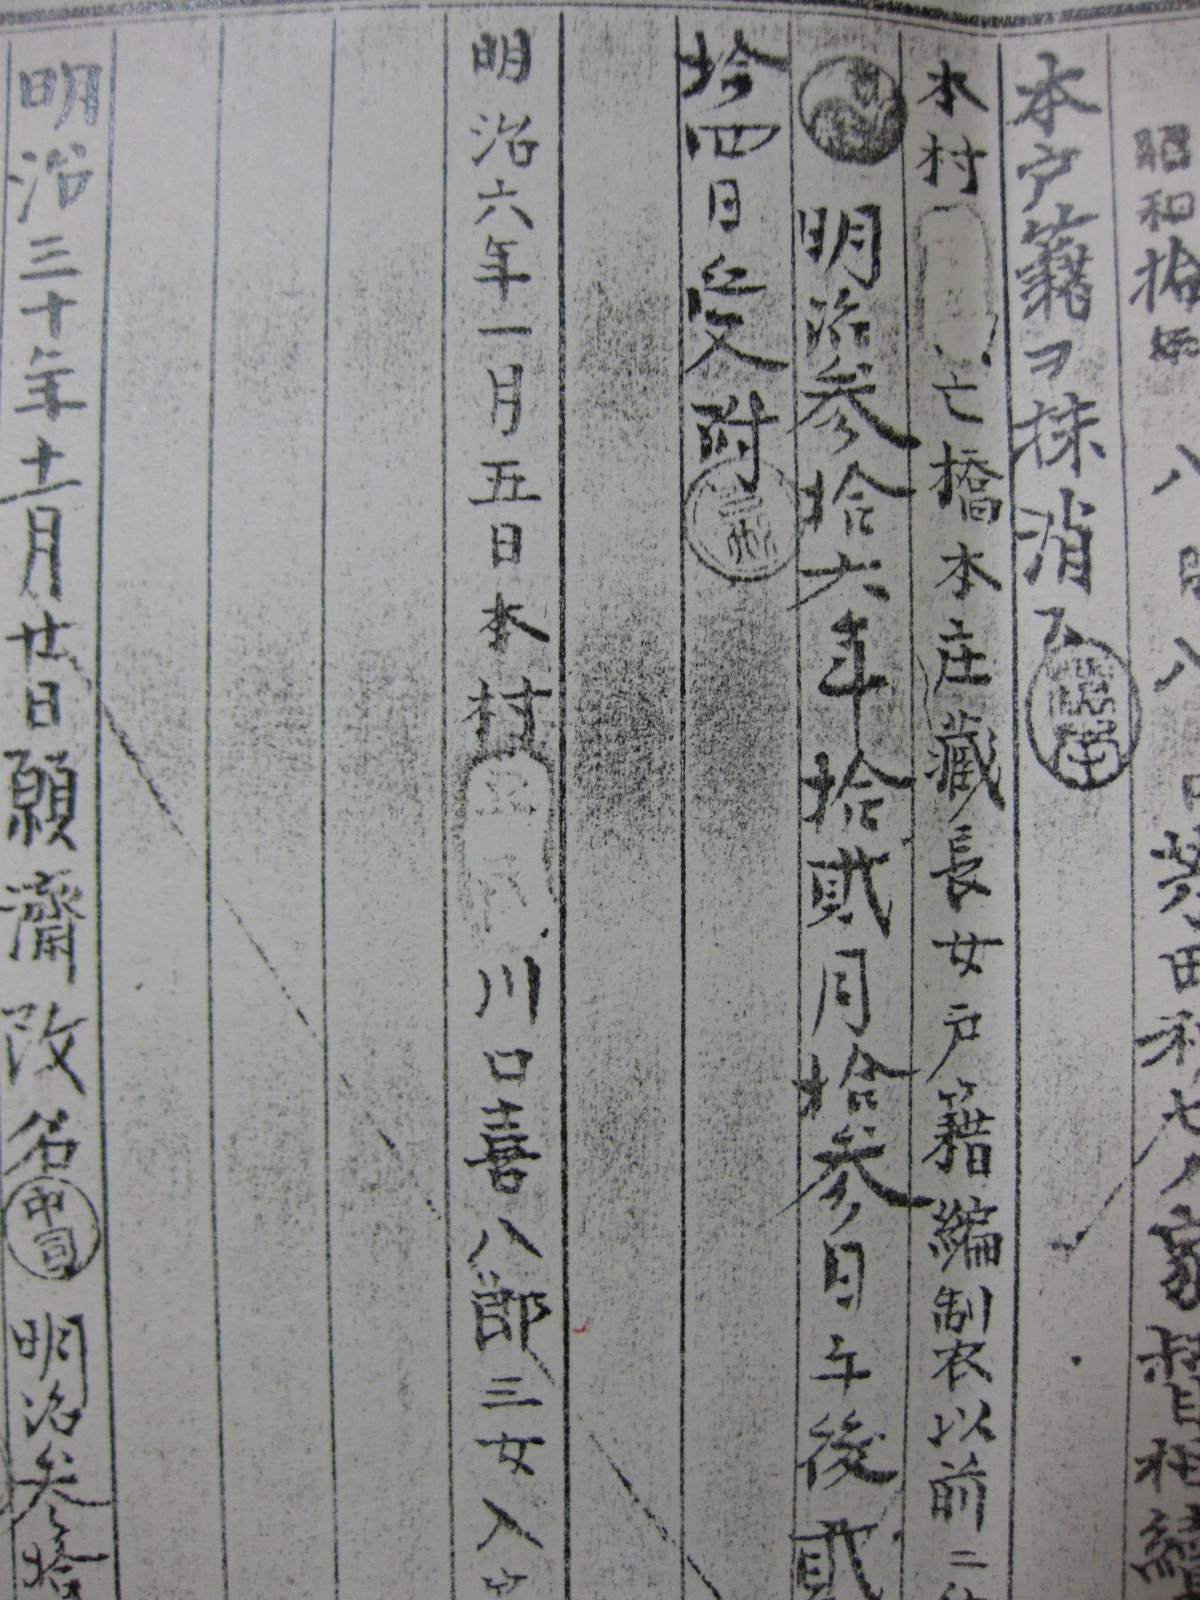 昭和拾年 八 日 八 日 荒田和七 家督相續
本戸籍ヲ抹消ス
本村 亡橋本庄藏長女戸籍編制以前ニ
明治參拾六年拾貳月拾參日午後貳
拾四日受附
明治六年一月五日本村 川口喜八郎三女入
明治三十年十一月廿日願濟改名 明治參拾